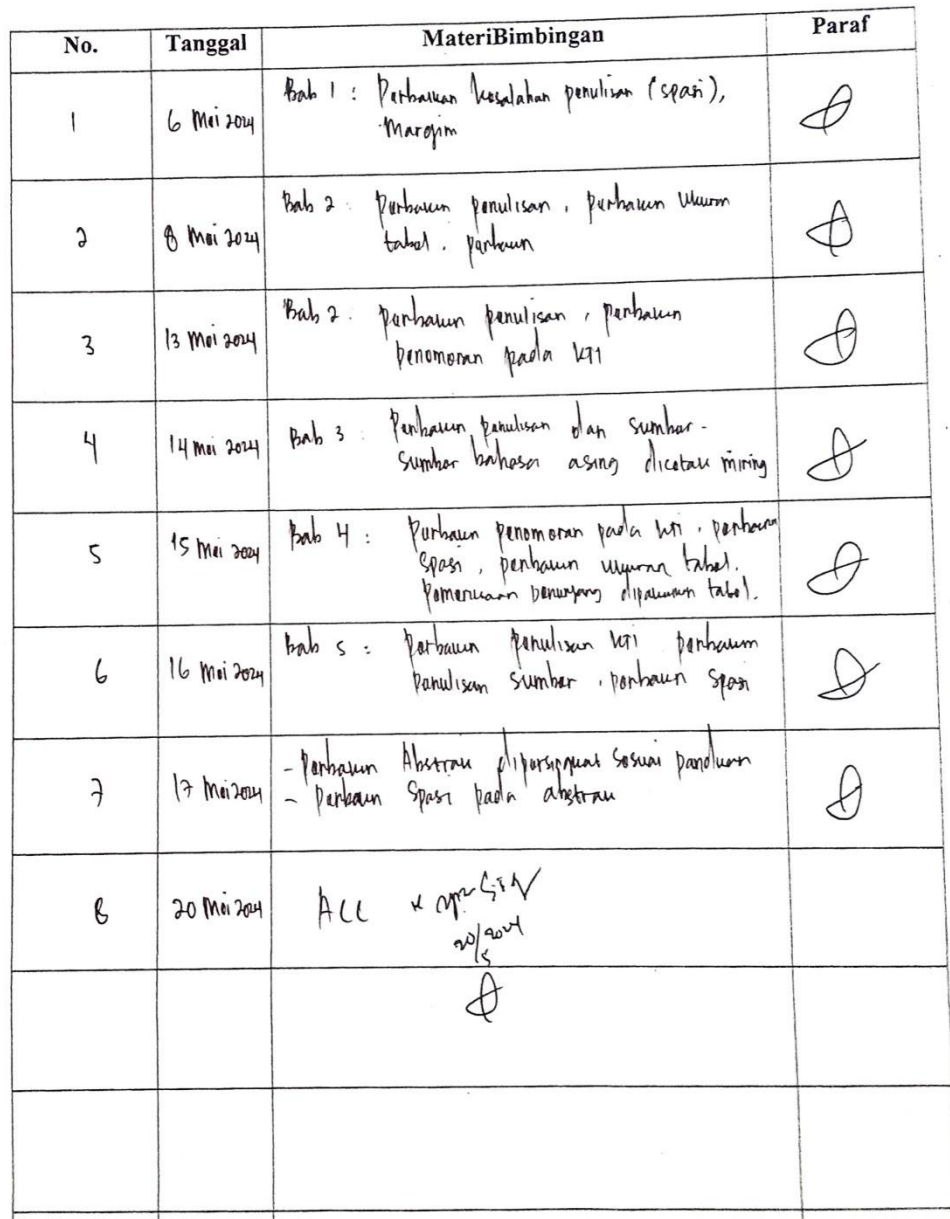 No. Tanggal MateriBimbingan Paraf
1 6 Mei 2024 Bab 1 : Perbaikan kesalahan penulisan (spasi),
Margin
2 8 Mei 2024 Bab 2 : Perbaikan penulisan, perbaikan ukuran
tabel.
3 13 Mei 2024 Bab 2 : perbaikan penulisan, perbaikan
penomoran pada KTI
4 14 mei 2024 Bab 3 : Perbaikan penulisan dan sumber-
sumber bahasa asing dicetak miring
5 15 Mei 2024 Bab 4 : Perbaikan penomoran pada KTI, perbaikan
spasi, perbaikan ukuran tabel.
Pemeriksaan penunjang tabel.
6 16 Mei 2024 Bab 5 : Perbaikan penulisan KTI perbaikan
penulisan sumber, perbaikan spasi
7 17 Mei 2024 - Perbaikan Abstrak dipersingkat sesuai panduan
- perbaikan spasi pada abstrak
8 20 Mei 2024 ACC